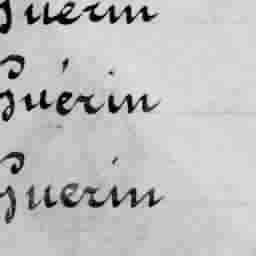 Guérin
Guérin
Guerin